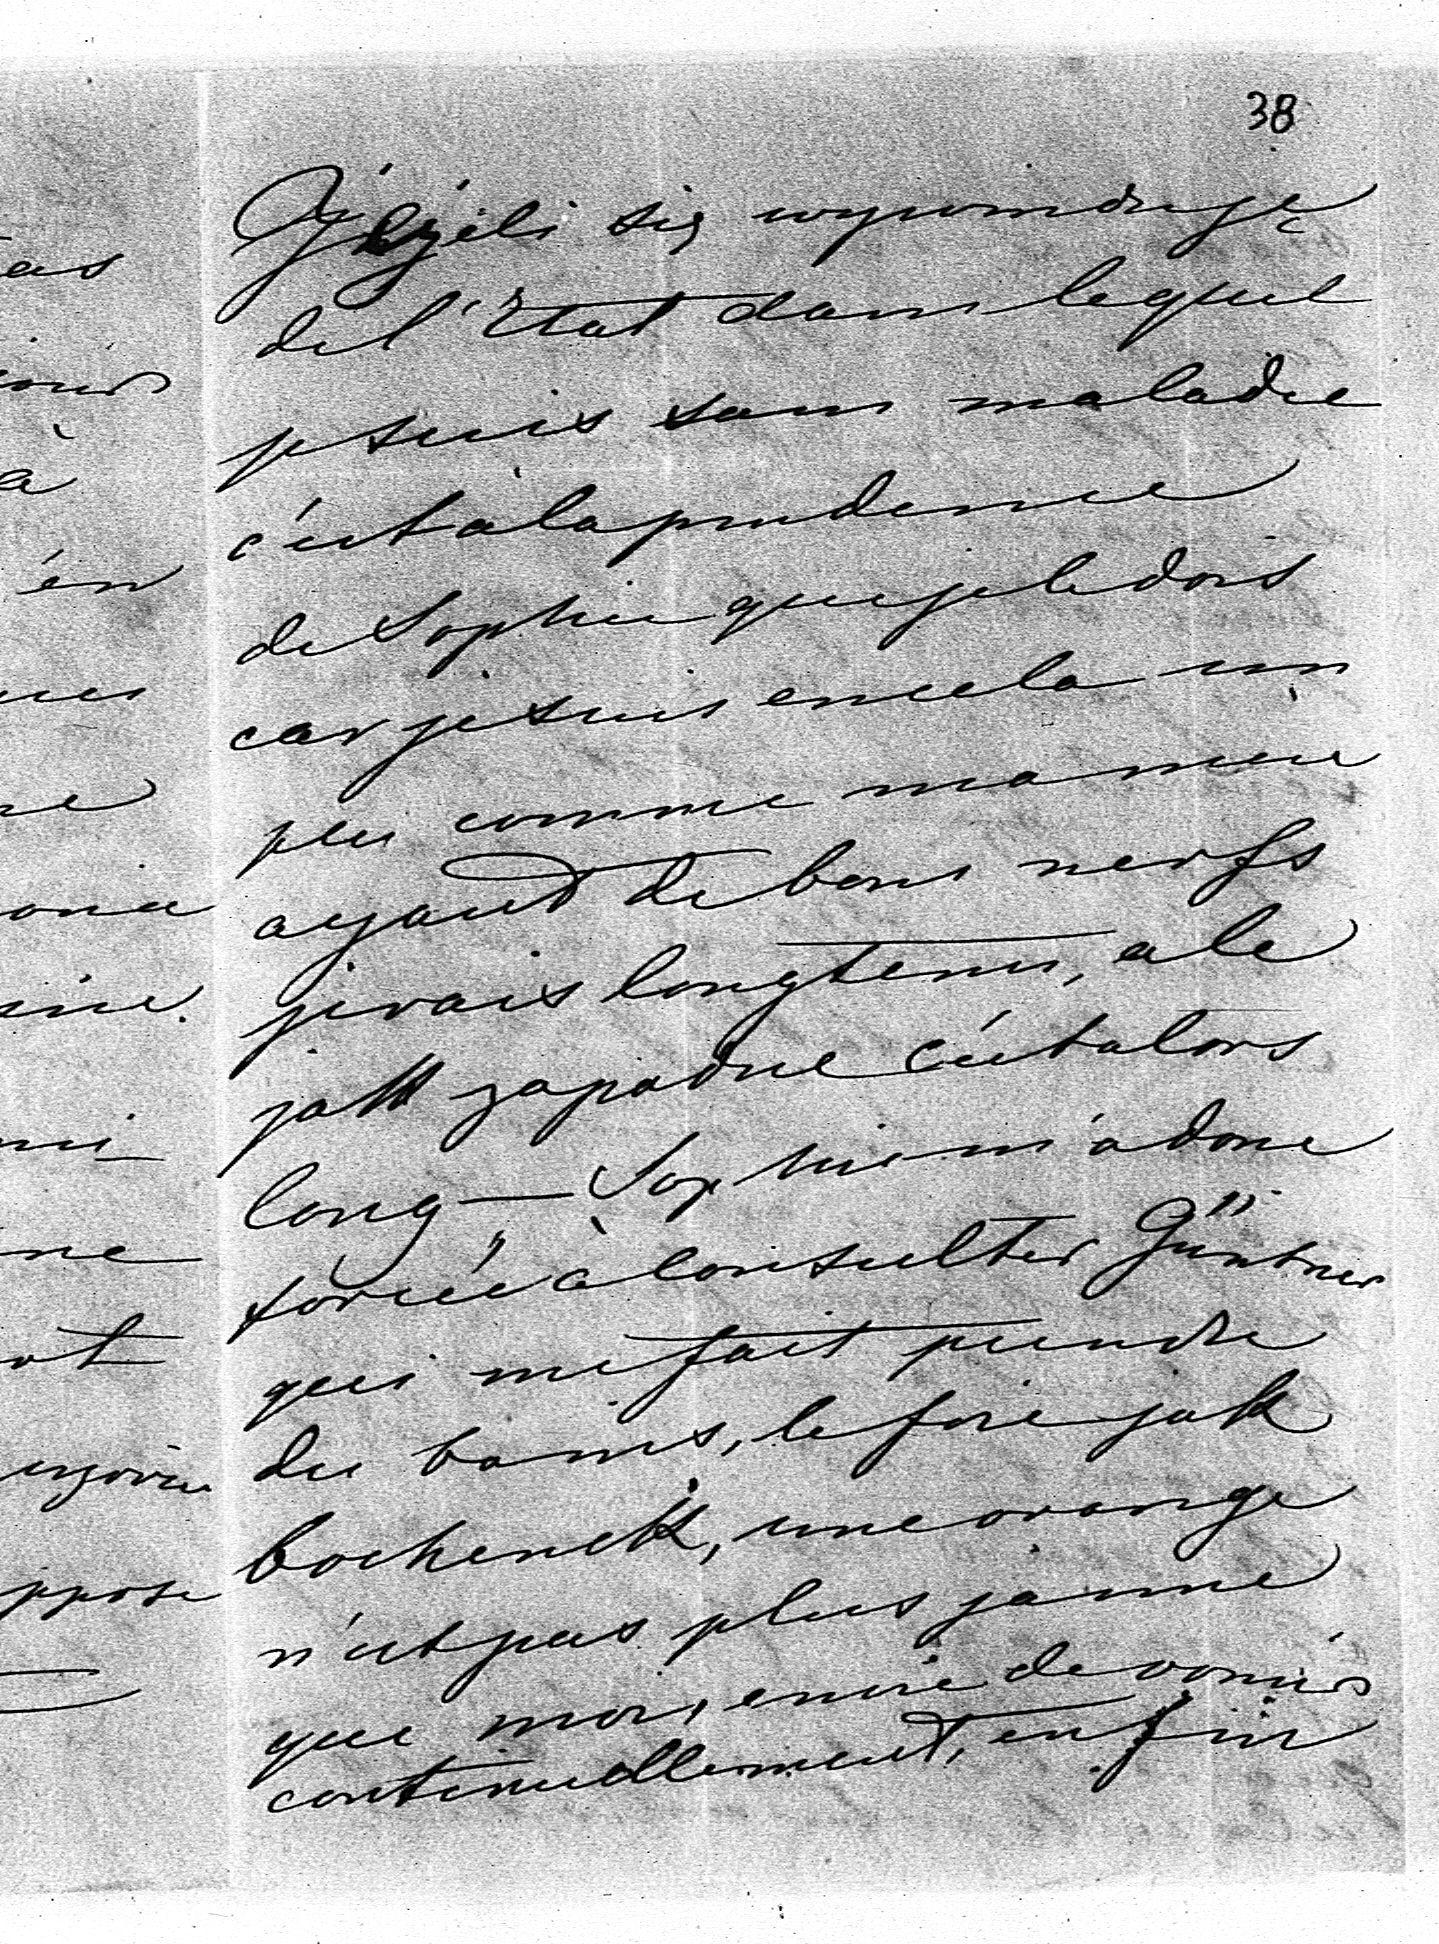 38
Jeżeli się wywinduję
de l'État dans lequel
je suis sans maladie
c'est à la prudence
de Sophie que je le dois
car je suis en cela un
peu comme ma mère
ayant de bons nerfs
j'irais longtems, ale
jak zapadne c'est alors
long — Sophie m'a donc
forcée à consulter Güntner
qui me fait prendre
des bains, le foie jak
bochenek, une orange
n'est pas plus jaune
que moi, envie de vomir
continuellement, enfin
as
jours
à
én
ues
ne
onie
ine.
ne
ot
ppose